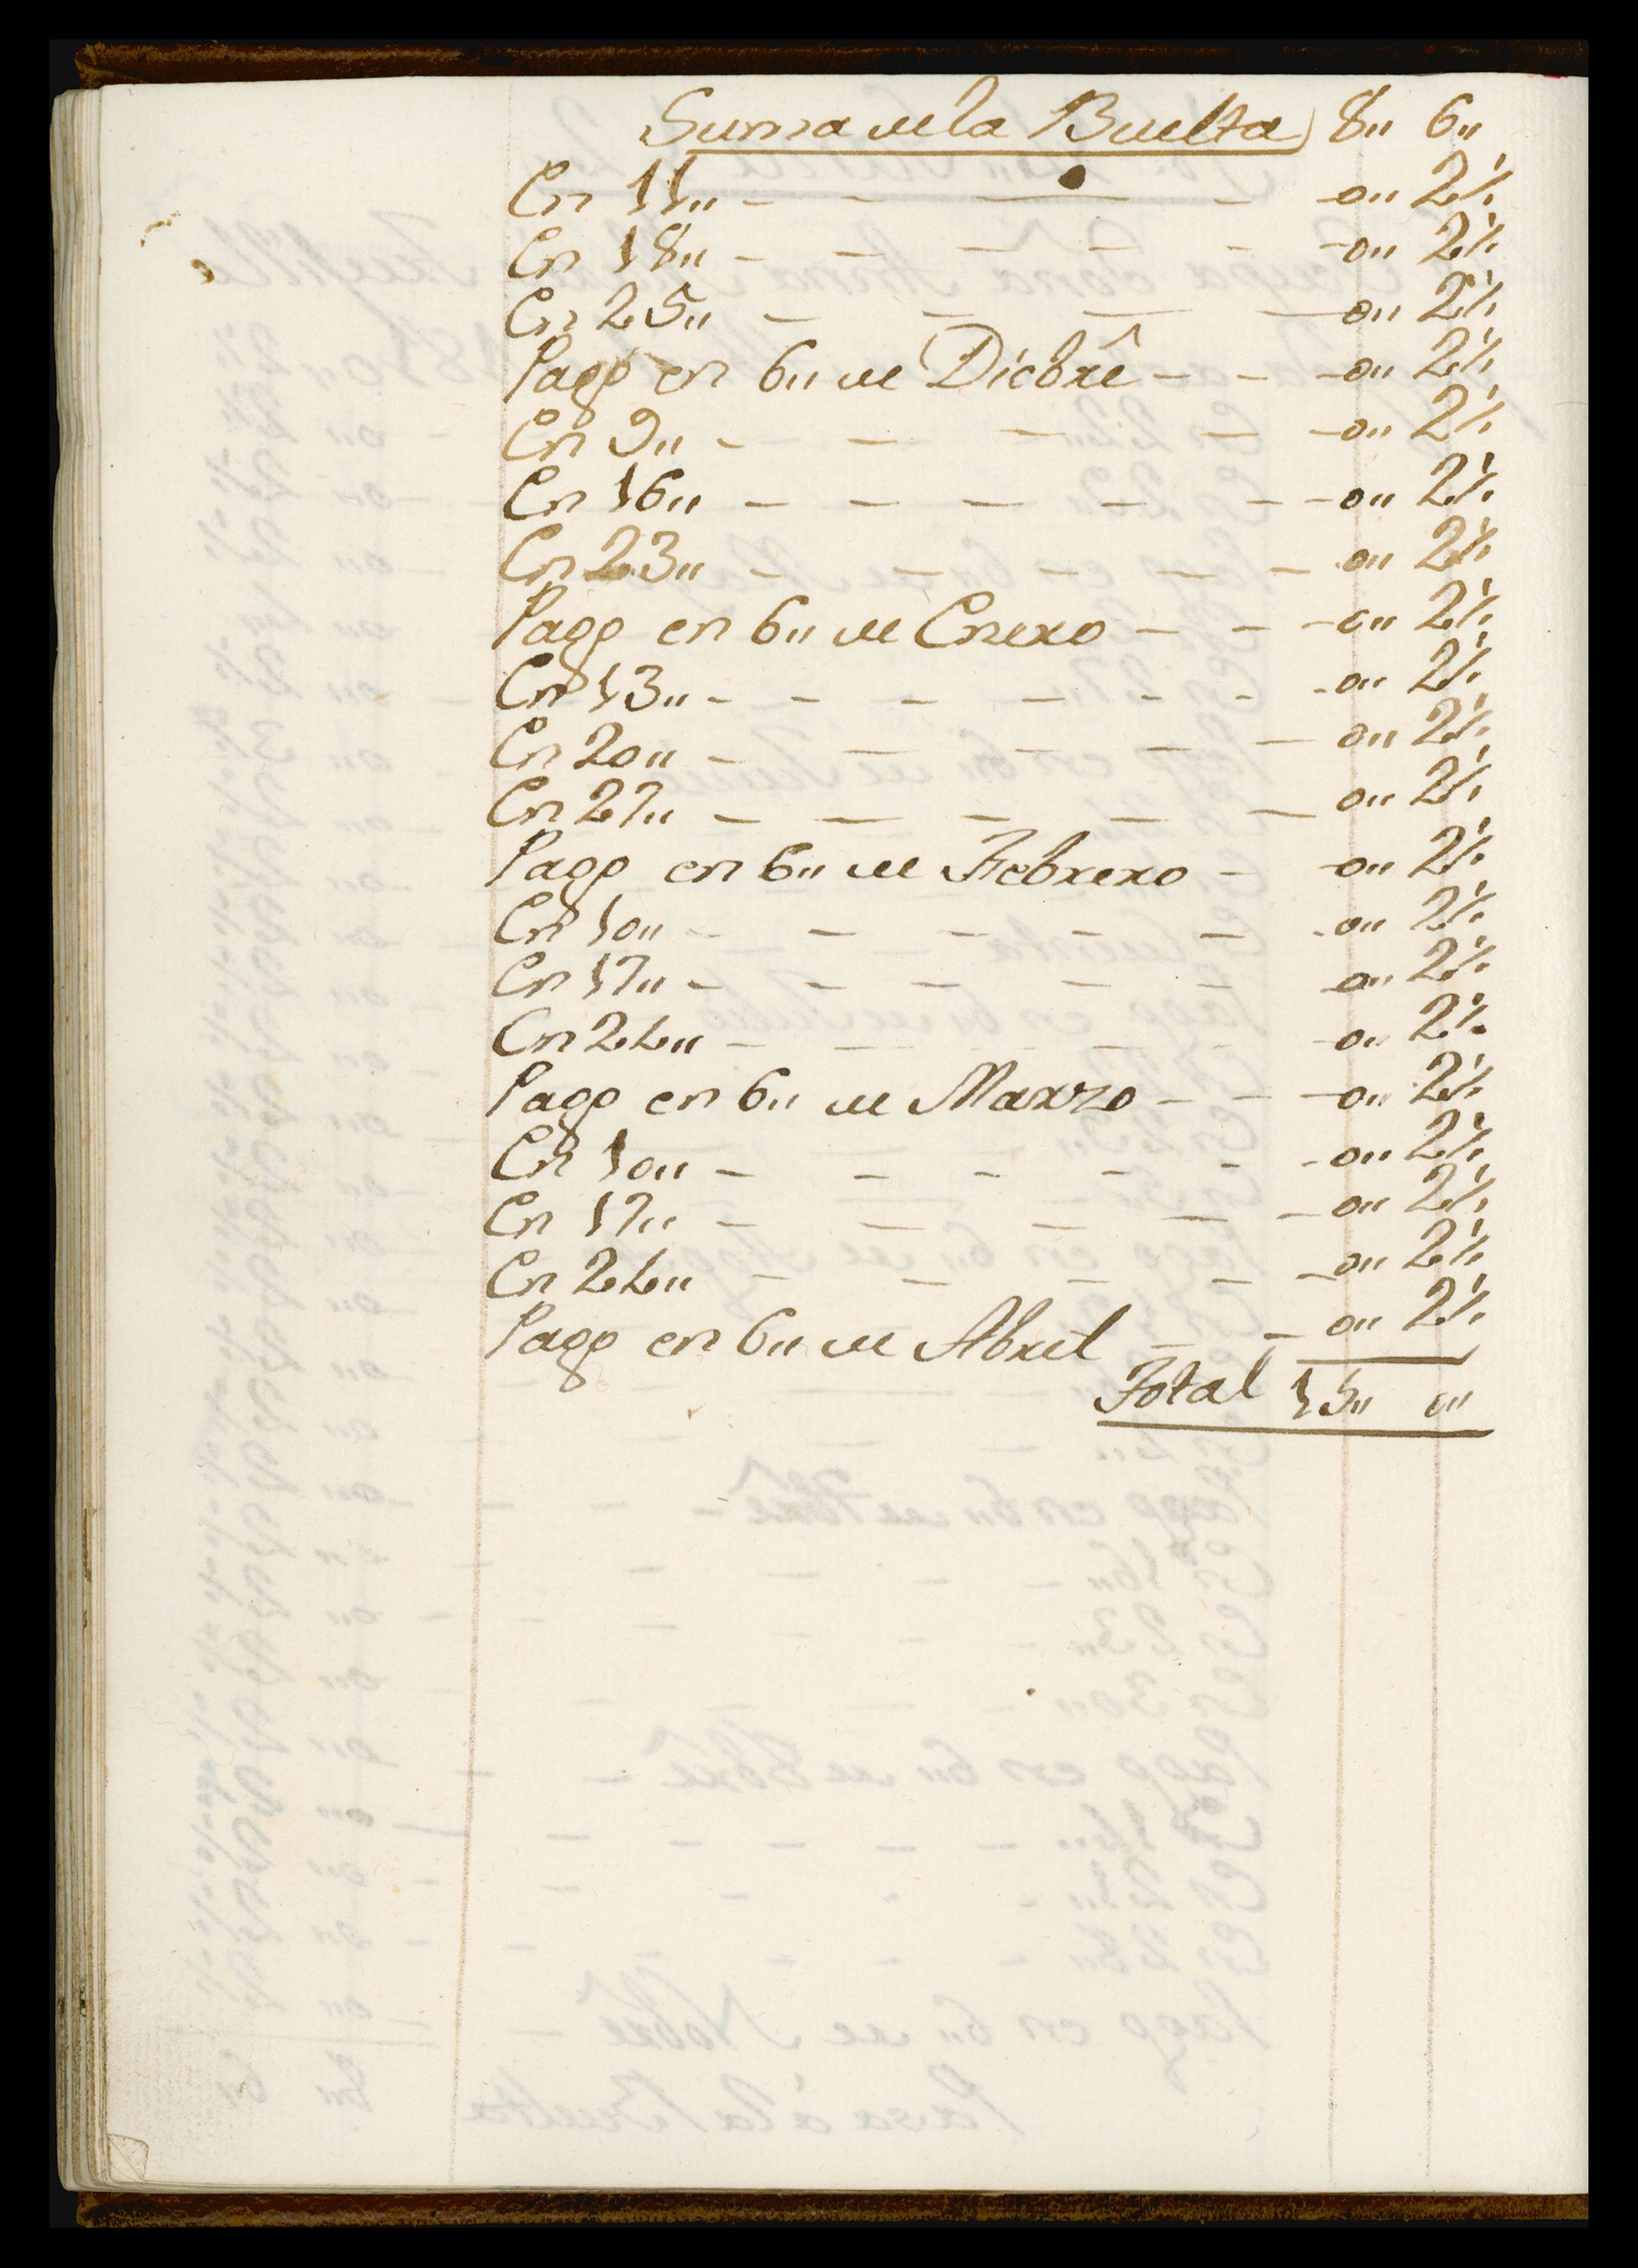 Suma de la Buelta 8" 6"
En 11" - - - - 0" 2½
En 18" - - - - - 0" 2½
En 25" - - - - 0" 2½
Pago en 6" de Dicbrê - - - 0" 2½
En 9" - - - - - 0" 2½
En 16" - - - - - - 0" 2½
En 23" - - - - - 0" 2½
Pago en 6" de Enero - - - 0" 2½
En 13" - - - - - - - 0" 2½
En 20" - - - - - 0" 2½
En 27" - - - - - 0" 2½
Pago en 6" de Febrero - 0" 2½
En 10" - - - - - - 0" 2½
En 17" - - - - - 0" 2½
En 24" - - - - - 0" 2½
Pago en 6" de Marzo - - - 0" 2½
En 10" - - - - - - 0" 2½
En 17" - - - - - 0" 2½
En 24" - - - - - 0" 2½
Pago en 6" de Abril - - 0" 2½
Total 15" 0"